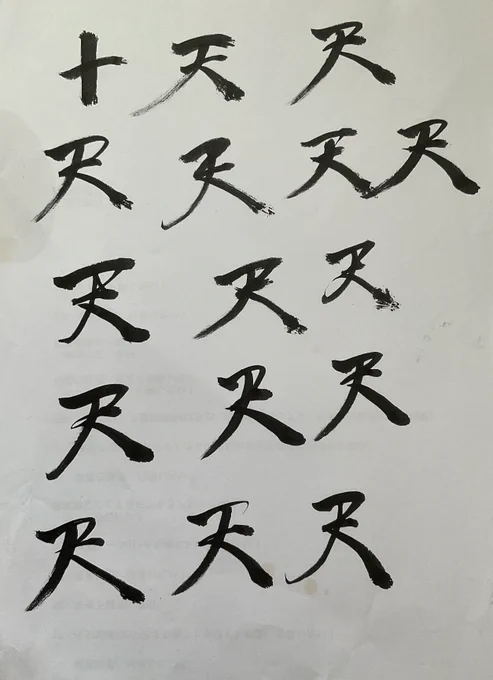 十 天 天
天 天 天 天
天 天 天
天 天 天
天 天 天